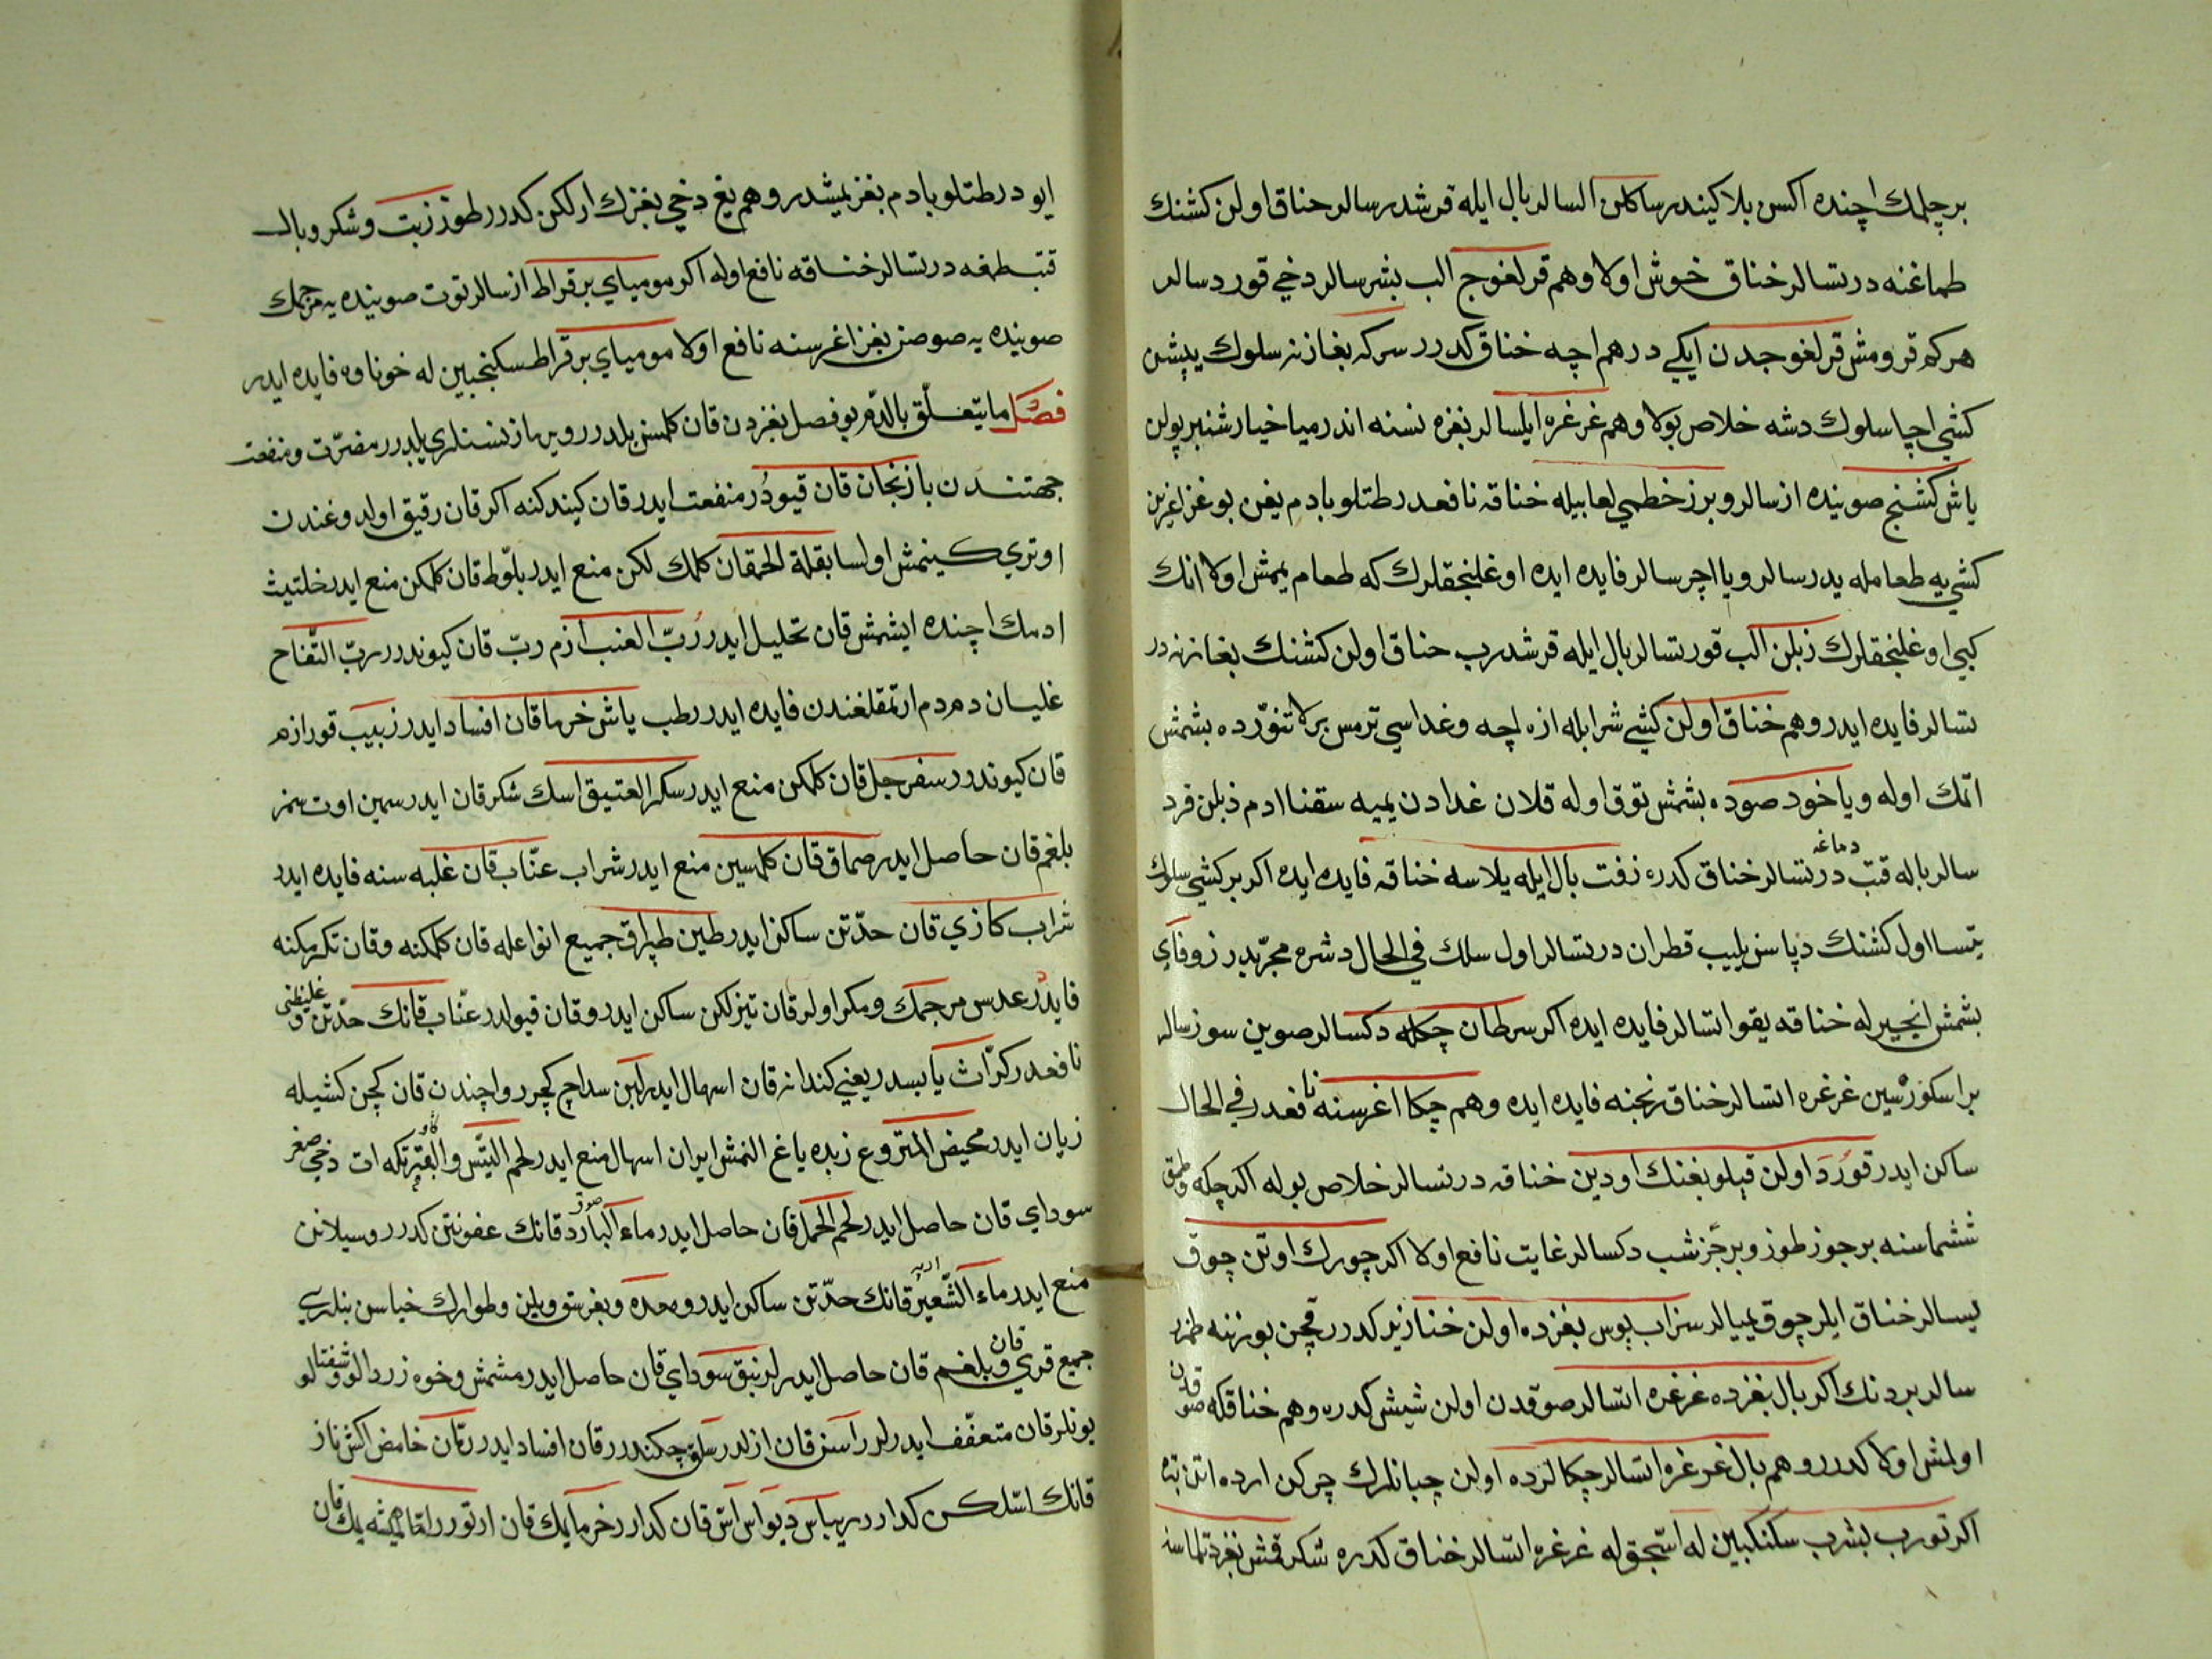 برچلمك اچنده اكسن بلا كيندرسا كلن السالر بال ايله قرشدرسالر خناق اولن كشنك
طماغنه درتسالر خناق خوش اولا وهم قرلغوج الب بشرسالر دخي قورد سالر
هركم قرومش قرلغوجدن ايكي درهم اچه خناق كدرر سركه بغازنه سلوك يپشن
كشي اچيا سلوك دشه خلاص بولا وهم غرغره ايلسالر بغزه نسنه اندرميا خيارشنبر پولن
ياش كشنج صوينده ازسالر وبرز خطمي لعابيله خناقه نافعدر طتلو بادم يغن بوغز اغرين
كشي يه طعامله يدرسالر ويا اچرسالر فايده ايده اوغلنجقلرك كه طعام يمش اولا انك
كبي اوغلنجقلرك زبلن الب قورتسالر بال ايله قرشدرب خناق اولن كشنك بغازنه در
تسالر فايده ايدر وهم خناق اولن كشي شرابله ازه اچه وغداسي ترمس برلا تنورده بشمش
اتمك اوله ويا خود صوده بشمش توق اوله قلان غدادن يميه سقنا ادم ذبلن قرد
سالر باله قتب دماغه درتسالر خناق كدره زفت بال ايله يلاسه خناقه فايده ايده اكر بر كشي سلوك
يتسا اول كشنك دپاسن يليب قطران درتسالر اول سلك في الحال دشره مجربدر زوفاي
بشمش انجيرله خناقه يقو اتسالر فايده ايده اكر سرطان چكله دكسالر صوين سوزسالر
بر اسكورسين غرغره اتسالر خناق رنجنه فايده ايده وهم چكا اغرسنه نافعدر في الحال
ساكن ايدر قورد اولن قپلو بغنك اودين خناقه درتسالر خلاص بوله اكر چكه وطمق
ششماسنه برجوز طوز وبرجز شب دكسالر غايت نافع اولا اكر چورك اوتن چوق
يسالر خناق ايلر چوق يميالر سزاب يوس بغزده اولن خنازير كدرر قچن بوزنه طمزر
سالر بردنك اكر بال بغزده غرغره اتسالر صوقدن اولن شيش كدره وهم خناقكه صوقدن
اولمش اولا كدرر وهم بال غرغره اتسالر چكالرده اولن چبانلرك چركن ارده اتن بته
اكر تورب بشرب سكنكبين له اسجق له غرغره اتسالر خناق كدره شكر قمش بغز دتلماسنه
ايودر طتلو بادم بغز يمشدر وهم يغ دخي بغزك ارلكن كدرر طوز زيت وشكر وبال
قتب طمغه درتسالر خناقه نافع اوله اكر مومياي برقراط ازسالر توت صوينده يه مرجمك
صوينده يه صوصن بغز اغرسنه نافع اولا مومياي برقراط سكنجبين له خوناوه فايده ايدر
فصل ما يتعلق بالدم بو فصل بغزدن قان كلمسن بلدرر وبرماز نسنلري يلدرر مضرت ومنفعت
جهتندن بازنجان قان قيودر منفعت ايدر قان كيندكنه اكر قان رقيق اولدوغندن
اوتري كينمش اولسا بقلة الحمقا قان كلمك لكن منع ايدر بلوط قان كلمكن منع ايدر خلتيث
ادمك اچنده ايشمش قان تحليل ايدر رب العنب ازم رب قان كيوندرر رب التفاح
غليان دم دم ارتمقلغندن فايده ايدر رطب ياش خرما قان افساد ايدر زبيب قور ازم
قان كيوندرر سفرجل قان كلمكن منع ايدر سكر العتيق اسك شكر قان ايدر سمين اوت سمز
بلغم قان حاصل ايدر صماق قان كلمسين منع ايدر شراب عناب قان غلبه سنه فايده ايدر
شراب كازي قان حدتن ساكن ايدر طين طپراق جميع انواعله قان كلمكنه وقان تكرمكنه
فايدر عدس مرجمك ومكر اولر قان تيزلكن ساكن ايدر وقان قيولدر عناب قانك حدتن وغليظني
نافعدر كراث يابسدر يعني كندانه قان اسهال ايدر لبن سداچ كچرر واچندن قان كچن كشيله
زيان ايدر مخيض المنزوع زبده ياغ النمش ايران اسهال منع ايدر لحم التيس والبقر تكه ات دخي صغر
سوداي قان حاصل ايدر لحم الحمل قان حاصل ايدر ماء البارد صوق قانك عفونتن كدرر وسيلانن
منع ايدر ماء الشعير ارپه قانك حدتن ساكن ايدر ومعده وبغرستو ويلين وطوارك خياسن بنلري
جميع قري قان وبلغم قان حاصل ايدر لزنبق سوداي قان حاصل ايدر مشمش وخوه زردالو وشفتالو
بونلر قان متعفف ايدرلر راسن قان ازلدر سلق چكندر قان افساد ايدر رمان خامض اكش نار
قانك اسلكن كدارر ريباس ديواس اش قان كدارر خرما يمك قان ارتورر اما هميشه يمك قان